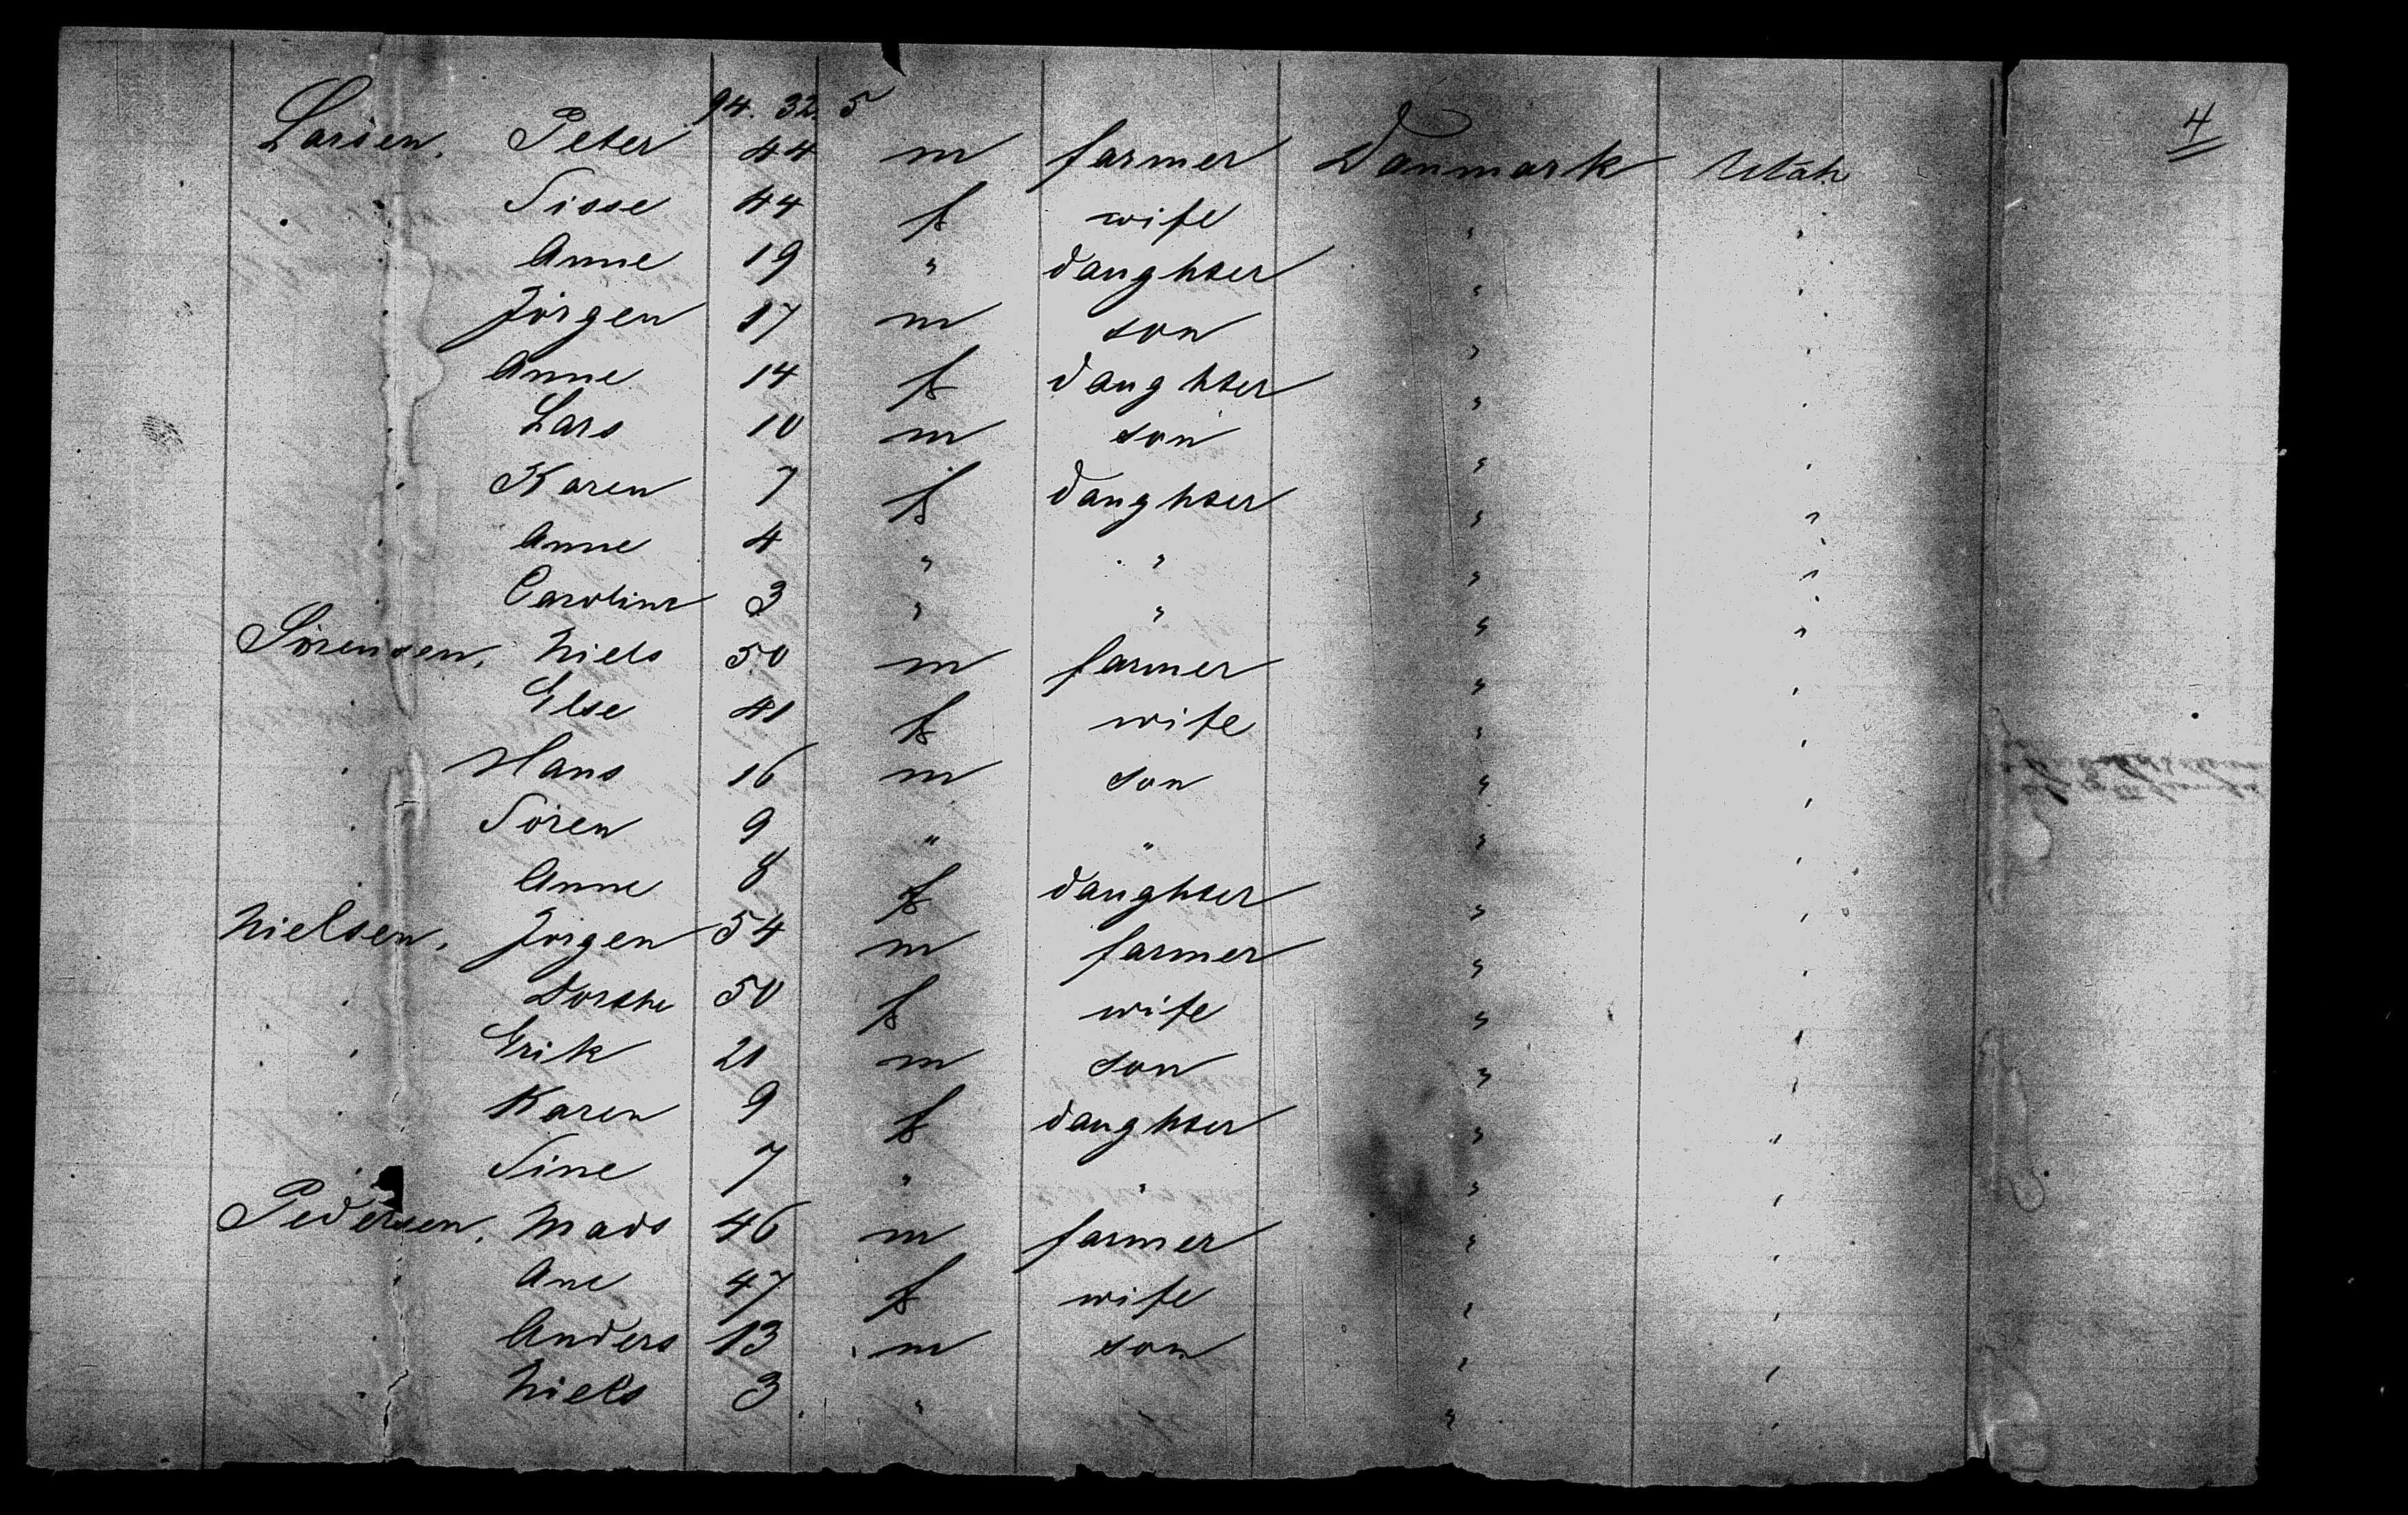 94. 32. 5
4
Larsen, Peter 44 m farmer Danmark Utah
" Sisse 44 f wife " "
" Anne 19 " daughter " "
" Jörgen 17 m son " "
" Anne 14 f daughter " "
" Lars 10 m son " "
" Karen 7 f daughter " "
" Anne 4 " " " "
" Caroline 3 " " " "
Sörensen, Niels 50 m farmer " "
" Else 41 f wife " "
" Hans 16 m son " "
" Sören 9 " " " "
" Anne 8 f daughter " "
Nielsen, Jörgen 54 m farmer " "
" Dorthe 50 f wife " "
" Erik 21 m son " "
" Karen 9 f daughter " "
" Sine 7 " " " "
Pedersen, Mads 46 m farmer " "
" Ane 47 f wife " "
" Anders 13 m son " "
" Niels 3 " " " "